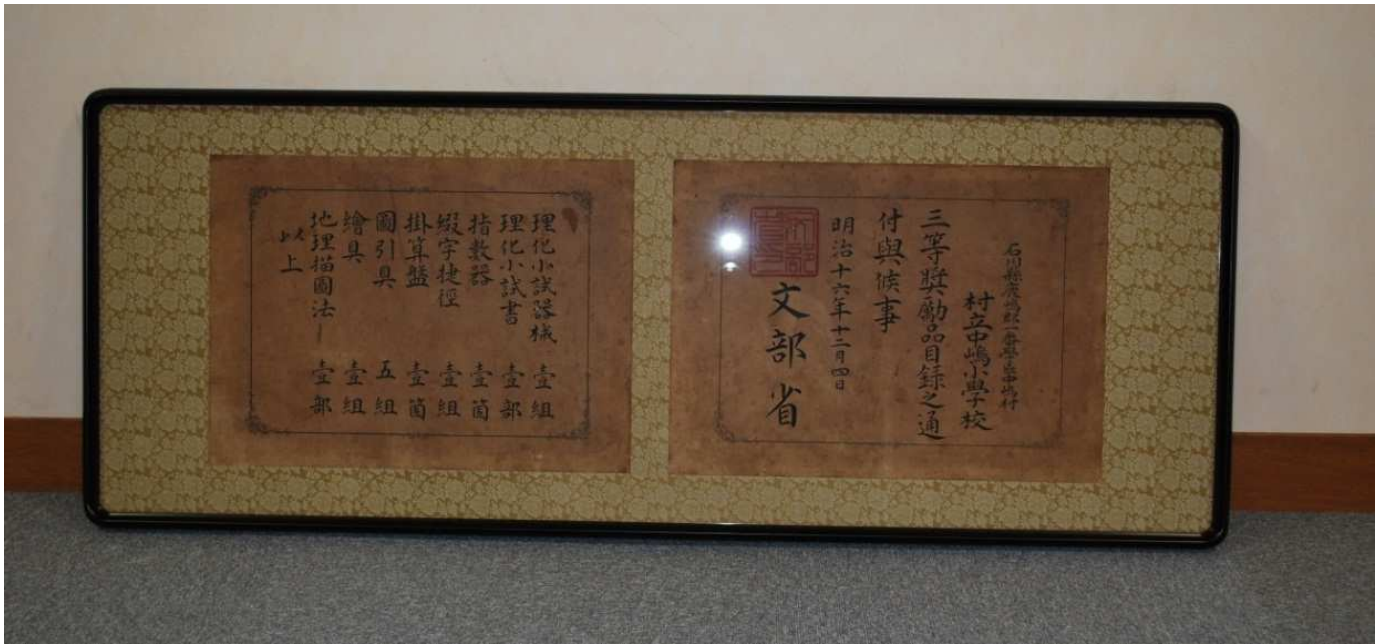 石川縣鹿嶋郡一番學區中嶋村
村立中嶋小學校
三等奬勵品目録之通
付與候事
明治十六年十二月四日
文部省
理化小試器械 壹組
理化小試書 壹部
指數器 壹箇
綴字捷徑 壹組
掛算盤 壹箇
圖引具 五組
繪具 壹組
地理描圖法 壹部
以上